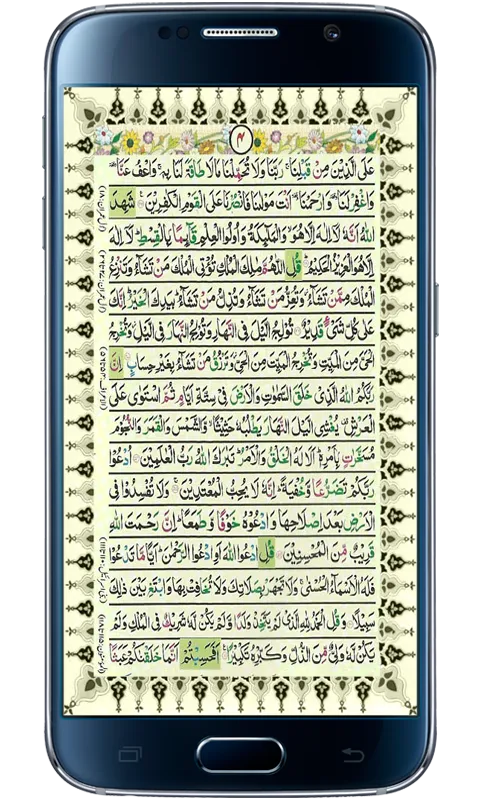 ٤
عَلَى الَّذِيْنَ مِنْ قَبْلِنَا ۚ رَبَّنَا وَلَا تُحَمِّلْنَا مَا لَا طَاقَةَ لَنَا بِهٖ ۚ وَاعْفُ عَنَّا ۥ
وَاغْفِرْ لَنَا ۥ وَارْحَمْنَا ۥ اَنْتَ مَوْلٰىنَا فَانْصُرْنَا عَلَى الْقَوْمِ الْكٰفِرِيْنَ ۞ شَهِدَ
اللهُ اَنَّهٗ لَآ اِلٰهَ اِلَّا هُوَ ۙ وَالْمَلٰٓئِكَةُ وَاُولُوا الْعِلْمِ قَآئِمًۢا بِالْقِسْطِ ؕ لَآ اِلٰهَ
اِلَّا هُوَ الْعَزِيْزُ الْحَكِيْمُ قُلِ اللّٰهُمَّ مٰلِكَ الْمُلْكِ تُؤْتِى الْمُلْكَ مَنْ تَشَآءُ وَتَنْزِعُ
الْمُلْكَ مِمَّنْ تَشَآءُ ۡ وَتُعِزُّ مَنْ تَشَآءُ وَتُذِلُّ مَنْ تَشَآءُ ؕ بِيَدِكَ الْخَيْرُ ؕ اِنَّكَ
عَلٰى كُلِّ شَىْءٍ قَدِيْرٌ ۞ تُوْلِجُ الَّيْلَ فِى النَّهَارِ وَتُوْلِجُ النَّهَارَ فِى الَّيْلِ ۡ وَتُخْرِجُ
الْحَىَّ مِنَ الْمَيِّتِ وَتُخْرِجُ الْمَيِّتَ مِنَ الْحَىِّ ۡ وَتَرْزُقُ مَنْ تَشَآءُ بِغَيْرِ حِسَابٍ اِنَّ
رَبَّكُمُ اللهُ الَّذِىْ خَلَقَ السَّمٰوٰتِ وَالْاَرْضَ فِىْ سِتَّةِ اَيَّامٍ ثُمَّ اسْتَوٰى عَلَى
الْعَرْشِ ۥ يُغْشِى الَّيْلَ النَّهَارَ يَطْلُبُهٗ حَثِيْثًا ۙ وَّالشَّمْسَ وَالْقَمَرَ وَالنُّجُوْمَ
مُسَخَّرٰتٍۢ بِاَمْرِهٖ ؕ اَلَا لَهُ الْخَلْقُ وَالْاَمْرُ ؕ تَبٰرَكَ اللهُ رَبُّ الْعٰلَمِيْنَ ۞ اُدْعُوْا
رَبَّكُمْ تَضَرُّعًا وَّخُفْيَةً ؕ اِنَّهٗ لَا يُحِبُّ الْمُعْتَدِيْنَ ۞ وَلَا تُفْسِدُوْا فِى
الْاَرْضِ بَعْدَ اِصْلَاحِهَا وَادْعُوْهُ خَوْفًا وَّطَمَعًا ؕ اِنَّ رَحْمَتَ اللهِ
قَرِيْبٌ مِّنَ الْمُحْسِنِيْنَ ۞ قُلِ ادْعُوا اللهَ اَوِ ادْعُوا الرَّحْمٰنَ ؕ اَيًّا مَّا تَدْعُوْا
فَلَهُ الْاَسْمَآءُ الْحُسْنٰى ۚ وَلَا تَجْهَرْ بِصَلَاتِكَ وَلَا تُخَافِتْ بِهَا وَابْتَغِ بَيْنَ ذٰلِكَ
سَبِيْلًا ۞ وَقُلِ الْحَمْدُ لِلّٰهِ الَّذِىْ لَمْ يَتَّخِذْ وَلَدًا وَّلَمْ يَكُنْ لَّهٗ شَرِيْكٌ فِى الْمُلْكِ وَلَمْ
يَكُنْ لَّهٗ وَلِىٌّ مِّنَ الذُّلِّ وَكَبِّرْهُ تَكْبِيْرًا ۞ اَفَحَسِبْتُمْ اَنَّمَا خَلَقْنٰكُمْ عَبَثًا